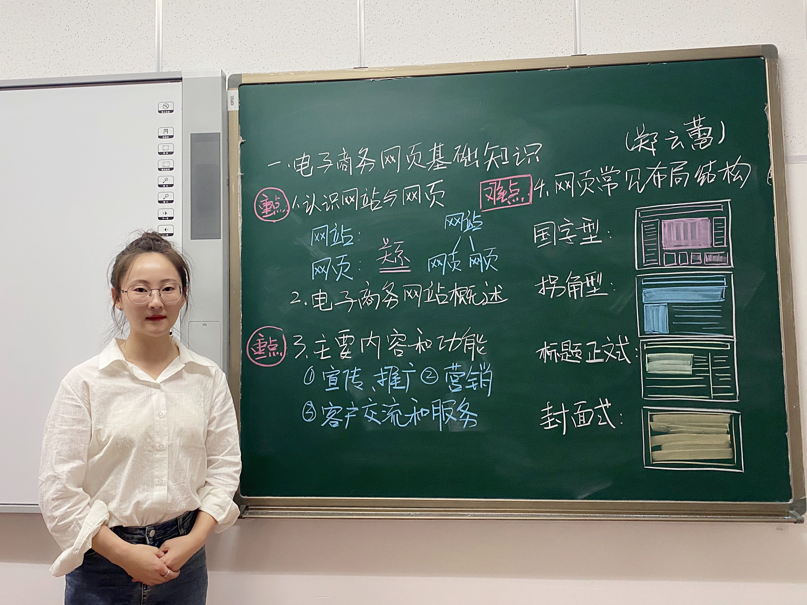 (郑云蕾)
一.电子商务网页基础知识
重点 1.认识网站与网页
网站:
网页: 关系 网站
网页 网页
2.电子商务网站概述
重点 3.主要内容和功能
①宣传、推广 ②营销
③客户交流和服务
难点 4.网页常见布局结构
国字型:
拐角型:
标题正文式:
封面式: